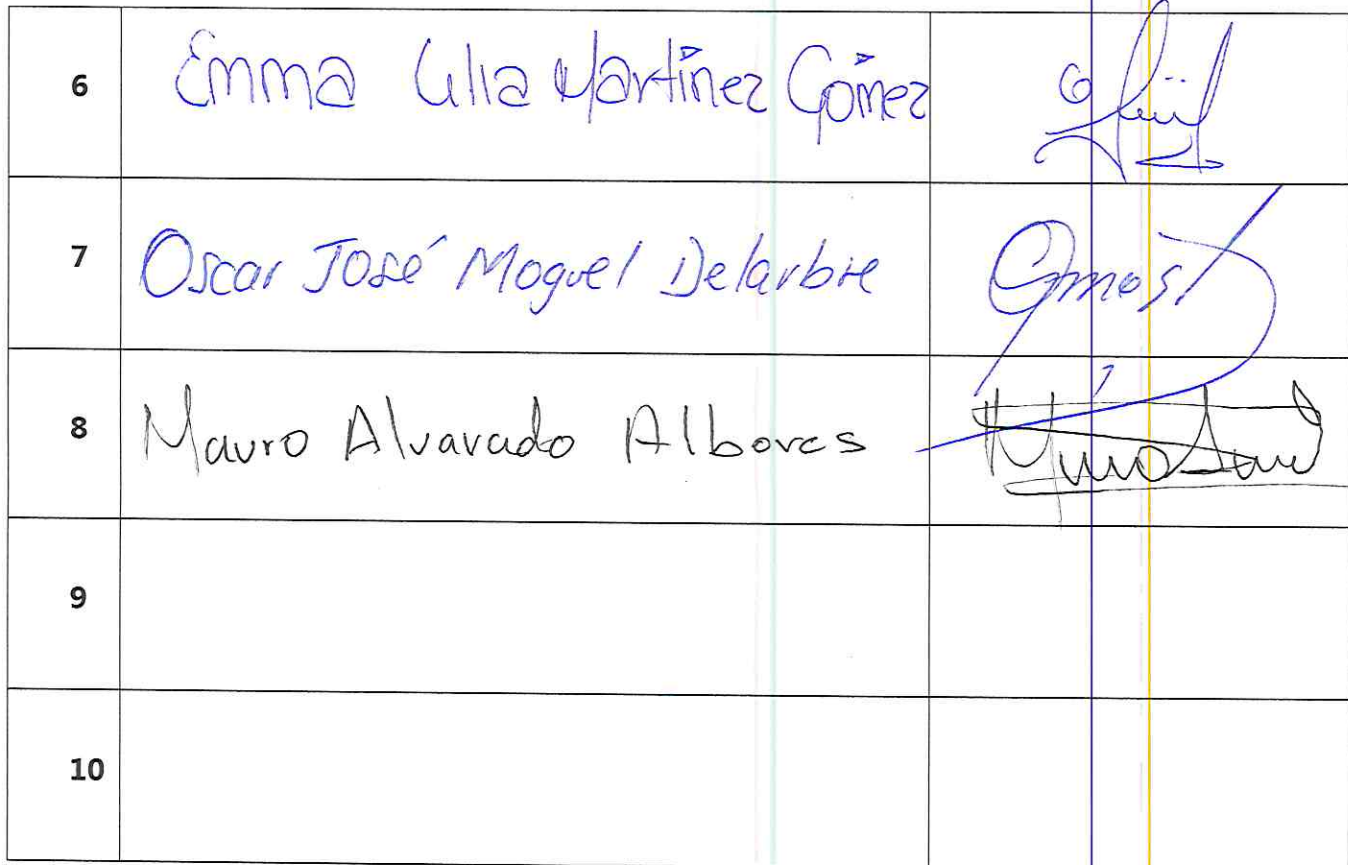 6 Emma Lilia Martínez Gómez
7 Oscar José Moguel Delarbre
8 Mauro Alvarado Albores
9
10